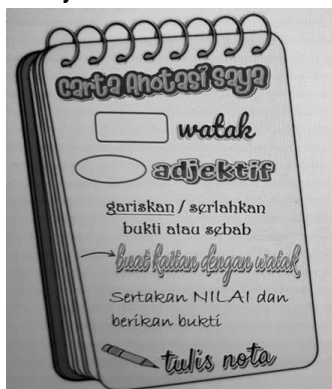 Carta Anotasi Saya
watak
adjektif
gariskan / serlahkan
bukti atau sebab
buat kaitan dengan watak
Sertakan NILAI dan
berikan bukti
tulis nota